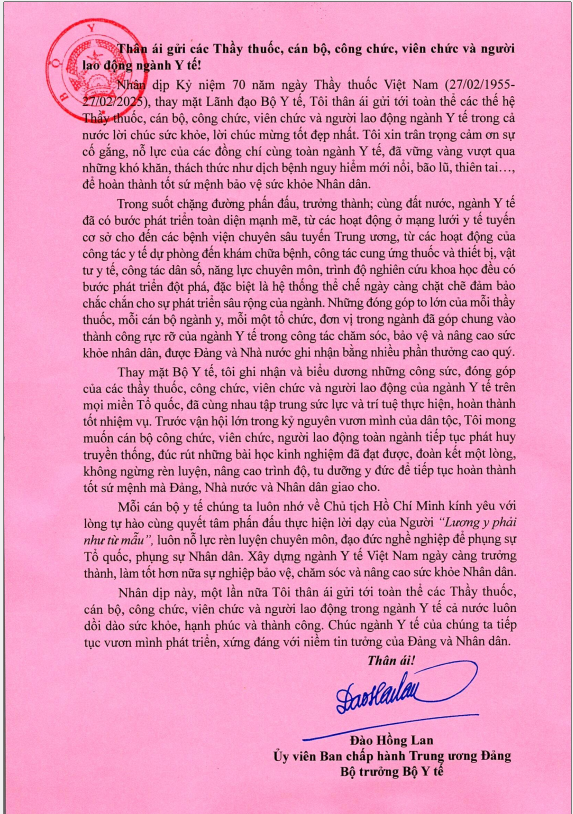 Thân ái gửi các Thầy thuốc, cán bộ, công chức, viên chức và người
lao động ngành Y tế!
Nhân dịp Kỷ niệm 70 năm ngày Thầy thuốc Việt Nam (27/02/1955-
27/02/2025), thay mặt Lãnh đạo Bộ Y tế, Tôi thân ái gửi tới toàn thể các thế hệ
Thầy thuốc, cán bộ, công chức, viên chức và người lao động ngành Y tế trong cả
nước lời chúc sức khỏe, lời chúc mừng tốt đẹp nhất. Tôi xin trân trọng cảm ơn sự
cố gắng, nỗ lực của các đồng chí cùng toàn ngành Y tế, đã vững vàng vượt qua
những khó khăn, thách thức như dịch bệnh nguy hiểm mới nổi, bão lũ, thiên tai…,
để hoàn thành tốt sứ mệnh bảo vệ sức khỏe Nhân dân.
Trong suốt chặng đường phấn đấu, trưởng thành; cùng đất nước, ngành Y tế
đã có bước phát triển toàn diện mạnh mẽ, từ các hoạt động ở mạng lưới y tế tuyến
cơ sở cho đến các bệnh viện chuyên sâu tuyến Trung ương, từ các hoạt động của
công tác y tế dự phòng đến khám chữa bệnh, công tác cung ứng thuốc và thiết bị, vật
tư y tế, công tác dân số, năng lực chuyên môn, trình độ nghiên cứu khoa học đều có
bước phát triển đột phá, đặc biệt là hệ thống thể chế ngày càng chặt chẽ đảm bảo
chắc chắn cho sự phát triển sâu rộng của ngành. Những đóng góp to lớn của mỗi thầy
thuốc, mỗi cán bộ ngành y, mỗi một tổ chức, đơn vị trong ngành đã góp chung vào
thành công rực rỡ của ngành Y tế trong công tác chăm sóc, bảo vệ và nâng cao sức
khỏe nhân dân, được Đảng và Nhà nước ghi nhận bằng nhiều phần thưởng cao quý.
Thay mặt Bộ Y tế, tôi ghi nhận và biểu dương những công sức, đóng góp
của các thầy thuốc, công chức, viên chức và người lao động của ngành Y tế trên
mọi miền Tổ quốc, đã cùng nhau tập trung sức lực và trí tuệ thực hiện, hoàn thành
tốt nhiệm vụ. Trước vận hội lớn trong kỷ nguyên vươn mình của dân tộc, Tôi mong
muốn cán bộ công chức, viên chức, người lao động toàn ngành tiếp tục phát huy
truyền thống, đúc rút những bài học kinh nghiệm đã đạt được, đoàn kết một lòng,
không ngừng rèn luyện, nâng cao trình độ, tu dưỡng y đức để tiếp tục hoàn thành
tốt sứ mệnh mà Đảng, Nhà nước và Nhân dân giao cho.
Mỗi cán bộ y tế chúng ta luôn nhớ về Chủ tịch Hồ Chí Minh kính yêu với
lòng tự hào cùng quyết tâm phấn đấu thực hiện lời dạy của Người “Lương y phải
như từ mẫu”, luôn nỗ lực rèn luyện chuyên môn, đạo đức nghề nghiệp để phụng sự
Tổ quốc, phụng sự Nhân dân. Xây dựng ngành Y tế Việt Nam ngày càng trưởng
thành, làm tốt hơn nữa sự nghiệp bảo vệ, chăm sóc và nâng cao sức khỏe Nhân dân.
Nhân dịp này, một lần nữa Tôi thân ái gửi tới toàn thể các Thầy thuốc,
cán bộ, công chức, viên chức và người lao động trong ngành Y tế cả nước luôn
dồi dào sức khỏe, hạnh phúc và thành công. Chúc ngành Y tế của chúng ta tiếp
tục vươn mình phát triển, xứng đáng với niềm tin tưởng của Đảng và Nhân dân.
Thân ái!
Đào Hồng Lan
Ủy viên Ban chấp hành Trung ương Đảng
Bộ trưởng Bộ Y tế